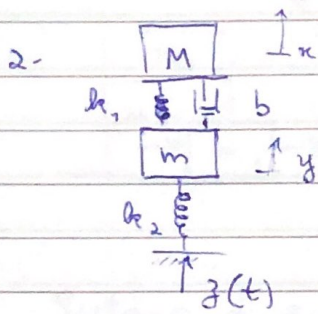 2-
M
x
k₁
b
m
y
k₂
z(t)